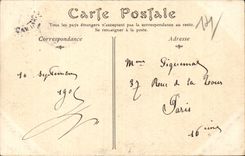 Carte Postale
Tous les pays étrangers n'acceptent pas la correspondance au recto.
Se renseigner à la poste.
Correspondance
Adresse
10 Septembre
1905
Mme Piquemal
37 Rue de la Tour
Paris
16 ème